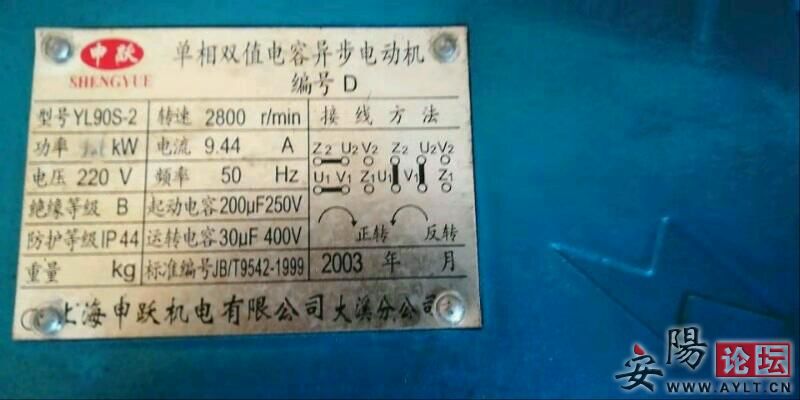 申跃
SHENGYUE
单相双值电容异步电动机
编号 D
型号YL90S-2 转速 2800 r/min 接线方法
功率 kW 电流 9.44 A
电压 220 V 频率 50 Hz
Z2 U2 V2 Z2 U2 V2
U1 V1 Z1 U1 V1 Z1
绝缘等级 B 起动电容200μF250V
防护等级IP44 运转电容30μF 400V
正转 反转
重量 kg 标准编号JB/T9542-1999 2003 年 月
上海申跃机电有限公司大溪分公司
安陽论坛
WWW.AYLT.CN